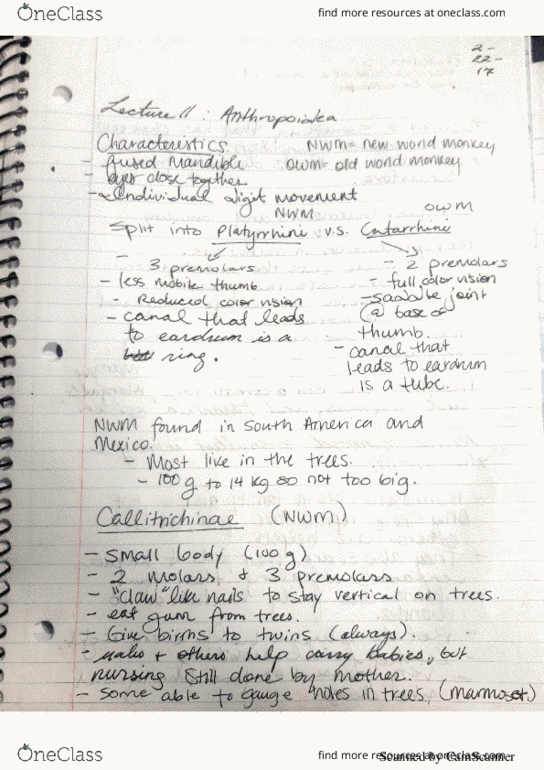 OneClass
find more resources at oneclass.com
2-
22-
17
Lecture 11 : Anthropoidea
Characteristics
NWM= new world monkey
- fused Mandible
OWM= old world monkey
- eyes close together
- Individual digit movement
NWM
OWM
Split into Platyrrhini v.s. Catarrhini
- 3 premolars
- less mobile thumb
- Reduced color vision
- canal that leads
to eardrum is a
ring.
- 2 premolars
- full color vision
- saddle joint
(@ base of
thumb.
- canal that
leads to eardrum
is a tube.
NWM found in South America and
Mexico.
- Most live in the trees.
- 100 g to 14 kg so not too big.
Callitrichinae (NWM)
- small body (100 g)
- 2 Molars + 3 premolars
- "claw" like nails to stay vertical on trees.
- eat gum from trees.
- Give births to twins (always).
- males + others help carry babies, but
nursing still done by mother.
- some able to gauge holes in trees, (marmoset)
OneClass
find more resources at oneclass.com
Scanned by CamScanner